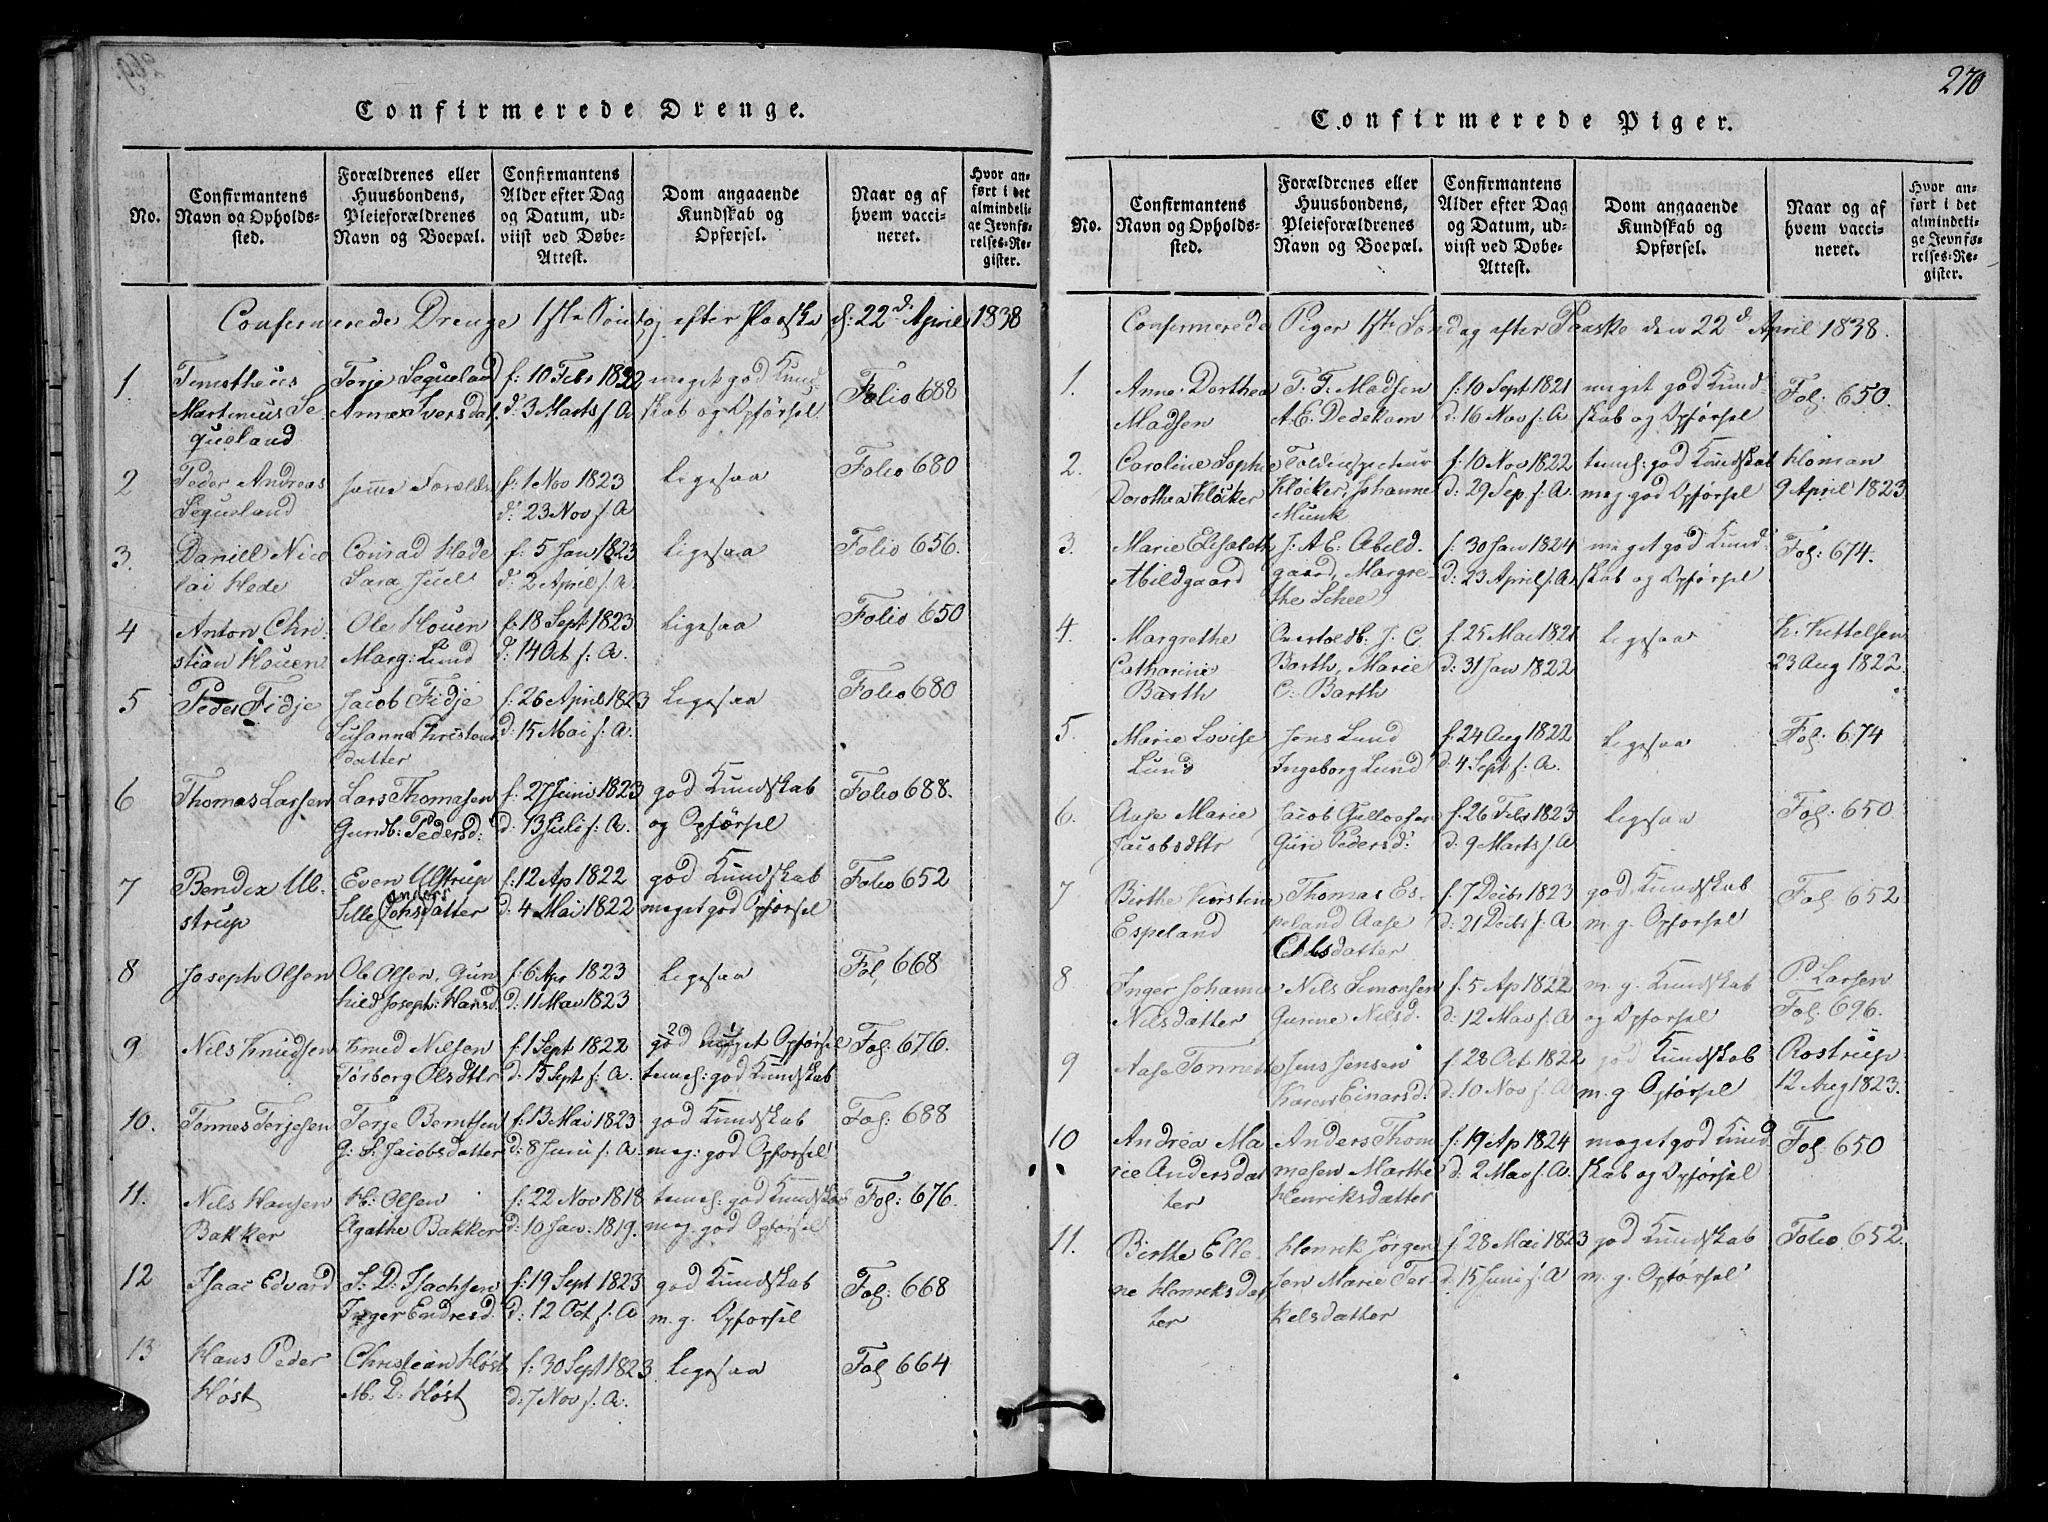 Confirmerede Drenge.
No.
Confirmantens Navn og Opholds-sted.
Forældrenes eller Huusbondens, Pleieforældrenes Navn og Boepæl.
Confirmantens Alder efter Dag og Datum, ud-viist ved Døbe-Attest.
Dom angaaende Kundskab og Opførsel.
Naar og af hvem vacci-neret.
Hvor an-ført i det almindeli-ge Jevnfø-relses-Re-gister.
Confermerede Drenge 1ste Sønd efter Paaske d: 22d April 1838
1 Timotheus Terje Sequeland f: 10 Febr 1822 meget god Kund- Folio 688
Martinius Se Anne Iversdat d: 3 Marts s. A skab og Opførsel
queland
2 Peder Andreas samme Forældre f: 1 Nov 1823 Ligesaa Folio 680
Sequeland d: 23 Nov s. A
3. Daniel Nico Conrad Hede f: 5 Jan 1823 Ligesaa Folio 656.
lai Hede Sara Juel d: 2 April s. A
4 Anton Chri- Ole Houen f: 18 Sept 1823 Ligesaa Folio 650
stian Houen Marg: Lund d: 14 Oct s: A.
5 Peder Fidje Jacob Fidje f: 26 April 1823 Ligesaa Folio 680
Susanne Christens d: 15 Mai s. A.
datter
6 Thomas Larsen Lars Thomasen f: 27 Juni 1823 god Kundskab Folio 688.
Gunb: Pedersd: d: 13 Juli s. A. og Opførsel
7 Bendix Ul- Even Ulstrup f: 12 Ap 1822 god Kundskab Folio 652
anders
strup Sille datter d: 4 Mai 1822 meget god Opførsel
8 Joseph Olsen Ole Olsen, Gun f: 6 Apr 1823 Ligesaa Fol 668
hild Joseph: Hansd. d: 11 Mai 1823
9 Nils Knudsen Knud Nilsen f: 1 Sept 1822 god meget Opførsel Fol: 676.
Torborg Olsdttr d: 15 Sept s. A. temel: god Kundskab
10. Tønnes Terjesen Terje Berntsen f: 13 Mai 1823 god Kundskab Fol: 688
G. S. Jacobsdatter d: 8 Juni s. A meg: god Opførsel
11. Nils Hansen H: Olsen f: 22 Nov 1818 temel: god Kundskab Fol: 676.
Bakker Agathe Bakker d: 10 Jan. 1819. meg. god Opførsel
12 Isaac Edvard S. D. Isachsen f: 19 Sept 1823 god Kundskab Fol: 668
Inger Endresd. d: 12 Oct s. A m. g. Opførsel
13 Hans Peder Christian Høst f. 30 Sept 1823 Ligesaa Fol 664
Høst M. D. Høst d: 7 Nov s. A.
270
Confirmerede Piger.
No.
Confirmantens Navn og Opholds-sted.
Forældrenes eller Huusbondens, Pleieforældrenes Navn og Boepæl.
Confirmantens Alder efter Dag og Datum, ud-viist ved Døbe-Attest.
Dom angaaende Kundskab og Opførsel.
Naar og af hvem vacci-neret.
Hvor an-ført i det almindeli-ge Jevnfø-relses-Re-gister.
Confermerede Piger 1ste Søndag efter Paaske den 22d April 1838.
1. Anne Dorthea T. F. Madsen f: 10 Sept 1821 meget god Kund Fol: 650.
Madsen A. E. Dedekam d: 16 Nov s: A skab og Opførsel
2. Caroline Sophie Toldinspecteur f: 10 Nov 1822 temel: god Kundskab Homan
Dorothea Kløcker Kløcker, Johanne d: 29 Sep. s. A. meg god Opførsel 9 April 1823
Munk
3. Marie Elisabeth J. A. E. Abild. f. 30 Jan 1824 meget god Kund Fol: 674.
Abildgaard gaard, Margre- d: 23 April s. A skab og Opførsel
the Schee
4. Margrethe J. C. f. 25 Mai 1821 Ligesaa K. Kittelsen
Catharine Barth, Marie d: 31 Jan 1822 23 Aug 1822.
Barth C. Barth
5. Marie Lovise Jens Lund f. 24 Aug 1822 Ligesaa Fol: 674
Lund Ingeborg Lund d: 4 Sept s. A.
6. Aase Marie Jacob f. 26 Febr 1823 Ligesaa Fol: 650
Jacobsdttr Guri Pedersd: d: 9 Marts s. A
7 Birthe Kirstine Thomas Es- f. 7 Decbr 1823 god Kundskab Fol: 652
Espeland peland Aase d: 21 Decbr s. A m. g. Opførsel
datter
8 Inger Johanne Nils Simonsen f. 5 Ap 1822 m. g. Kundskab P Larsen
Nilsdatter Gurine Nilsd. d: 12 Mai s. A og Opførsel Fol: 696.
9 Aase Tonnette Jens Jensen f. 28 Oct 1822 god Kundskab Rostrup
Karen Einarsd. d: 10 Nov s. A m. g. Opførsel 12 Aug 1823.
10 Andrea Ma Anders Thom f: 19 Ap 1824 meget god Kund. Fol: 650
rie Andersdat mesen Marthe d: 2 Mai s. A. skab og Opførsel
ter Henriksdatter
11. Birthe Elle- Henrik Jørgen f. 28 Mai 1823 god Kundskab Folio 652.
ne Henriksdat sen Marie Ter- d: 15 Juni s. A m. g. Opførsel
ter kelsdatter